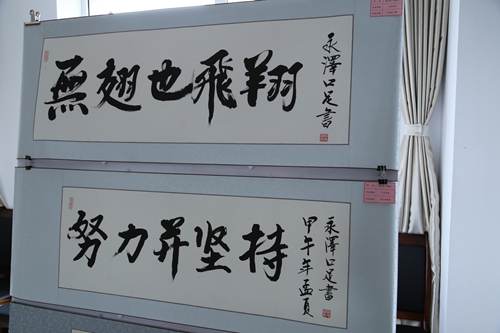 無翅也飛翔
永澤口足書
努力并坚持
永澤口足書
甲午年孟夏